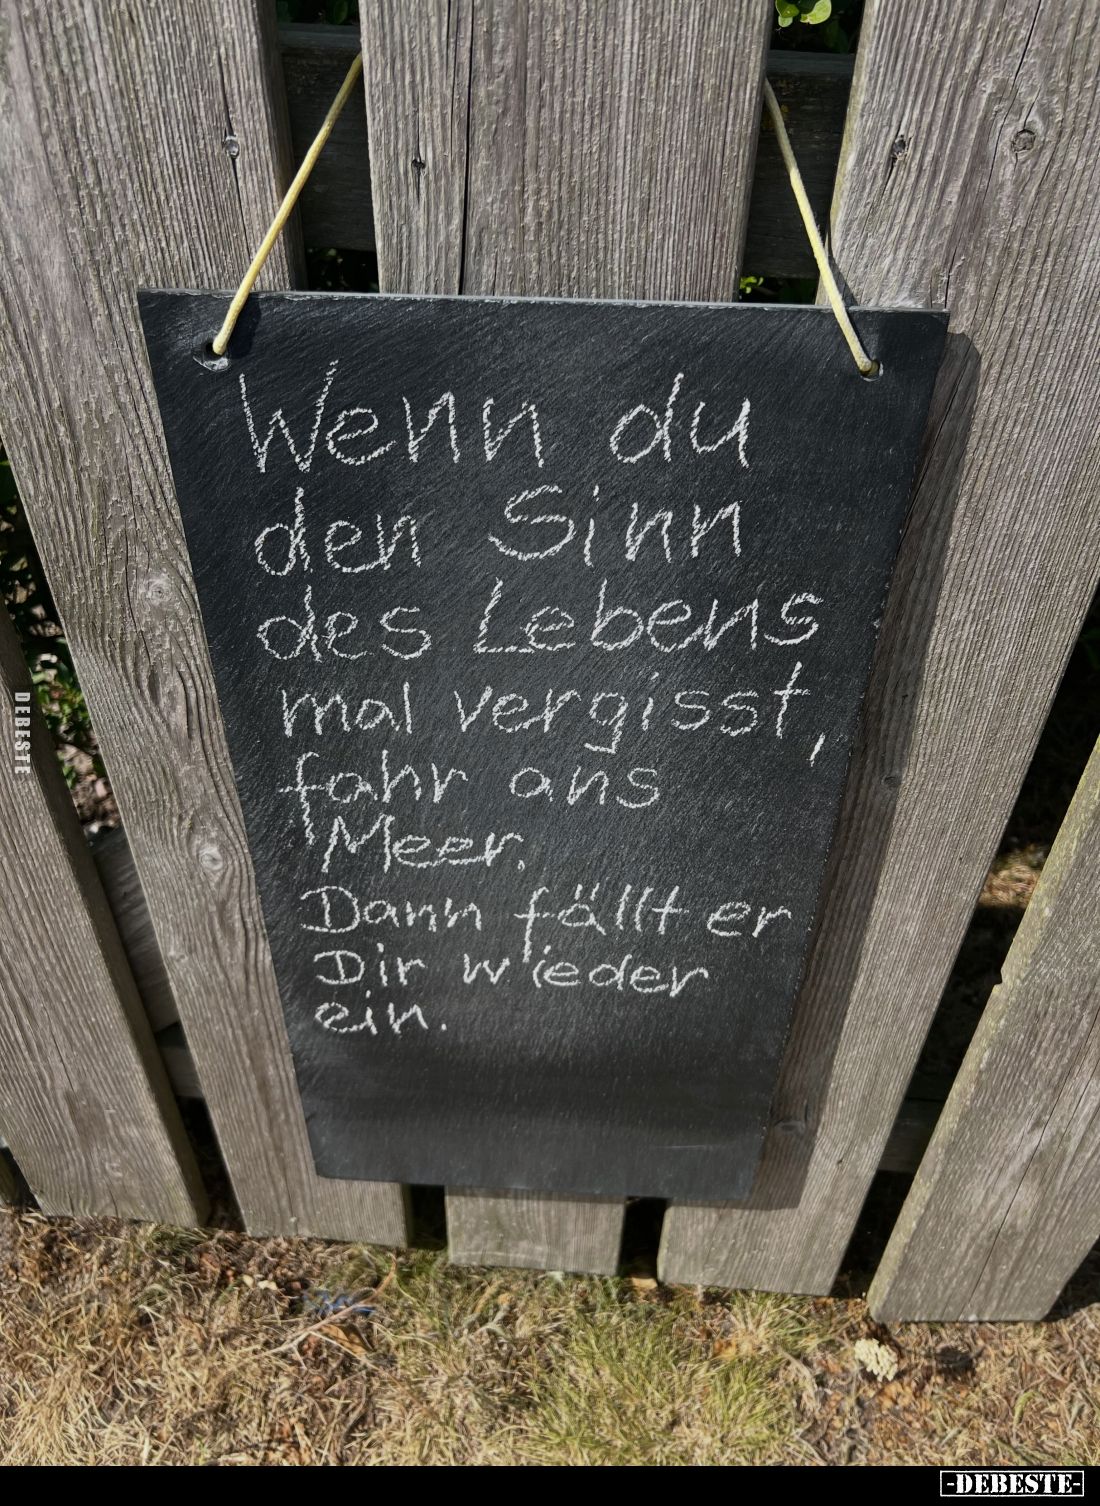 Wenn du
den Sinn
des Lebens
mal vergisst,
fahr ans
Meer.
Dann fällt er
Dir wieder
ein.
DEBESTE
-DEBESTE-